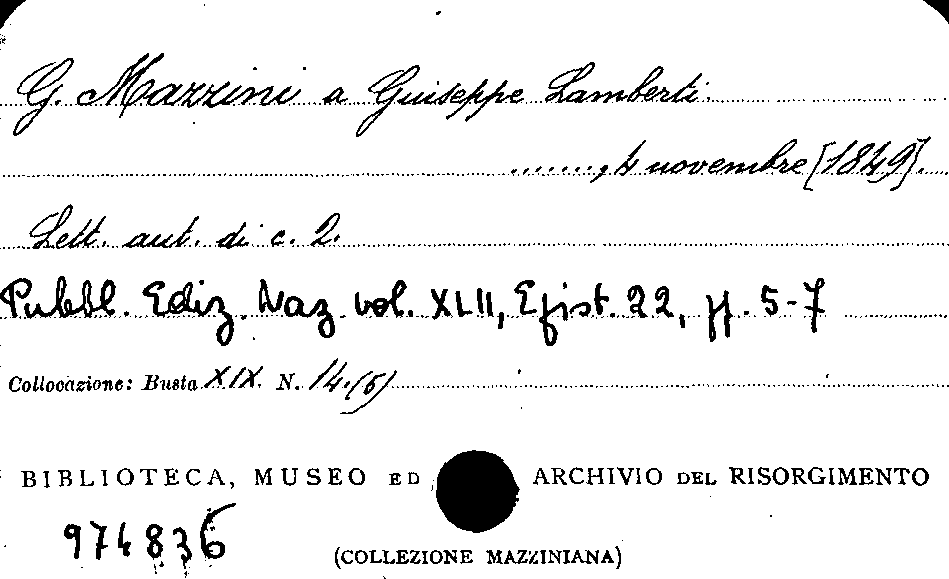 G. Mazzini a Giuseppe Lamberti.
........, 4 novembre [1849].
Lett. aut. di c. 2.
Pubbl. Ediz. Naz. vol. XLII, Epist. 22, pp. 5-7
Collocazione: Busta XIX. N. 14.(5)
BIBLIOTECA, MUSEO ED ARCHIVIO DEL RISORGIMENTO
974836
(COLLEZIONE MAZZINIANA)